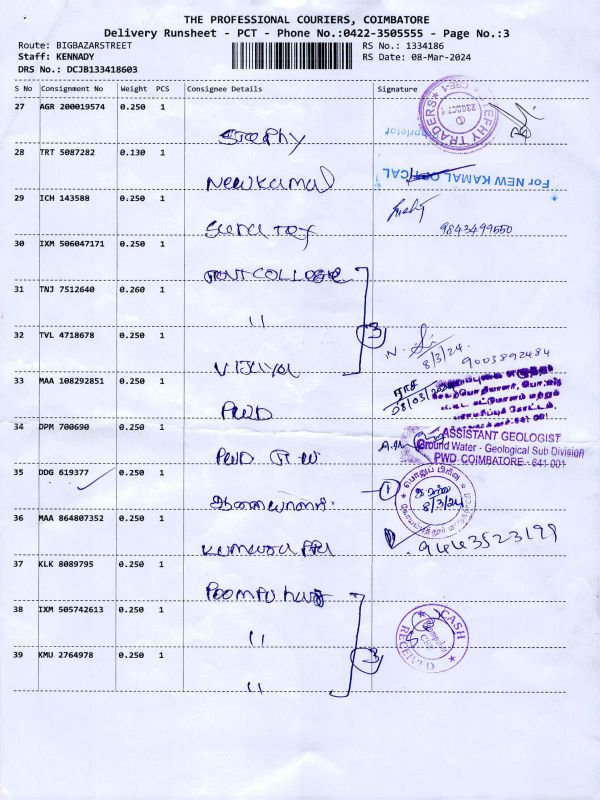 THE PROFESSIONAL COURIERS, COIMBATORE
Delivery Runsheet - PCT - Phone No.:0422-3505555 - Page No.:3
Route: BIGBAZARSTREET RS No.: 1334186
Staff: KENNADY RS Date: 08-Mar-2024
DRS No.: DCJB133418603
S No Consignment No Weight PCS Consignee Details Signature
27 AGR 200019574 0.250 1
EPHY TRADERS
28 TRT 5087282 0.130 1
New Kamal
For NEW KAMAL OPTICAL
29 ICH 143588 0.250 1
9843499550
30 IXM 506047171 0.250 1
31 TNJ 7512640 0.260 1
"
3
32 TVL 4718678 0.250 1
N.
8/3/24. 9003892484
Vijaya
33 MAA 108292851 0.250 1
08/03/2024
PWD
34 DPM 700690 0.250 1
ASSISTANT GEOLOGIST
Ground Water - Geological Sub Division
PWD COIMBATORE - 641 001
PWD G.W
35 DDG 619377 0.250 1
1
8/3/24
36 MAA 864807352 0.250 1
9443523199
37 KLK 8089795 0.250 1
Poompuhar
38 IXM 505742613 0.250 1
CASH
RECEIVED
"
3
39 KMU 2764978 0.250 1
"